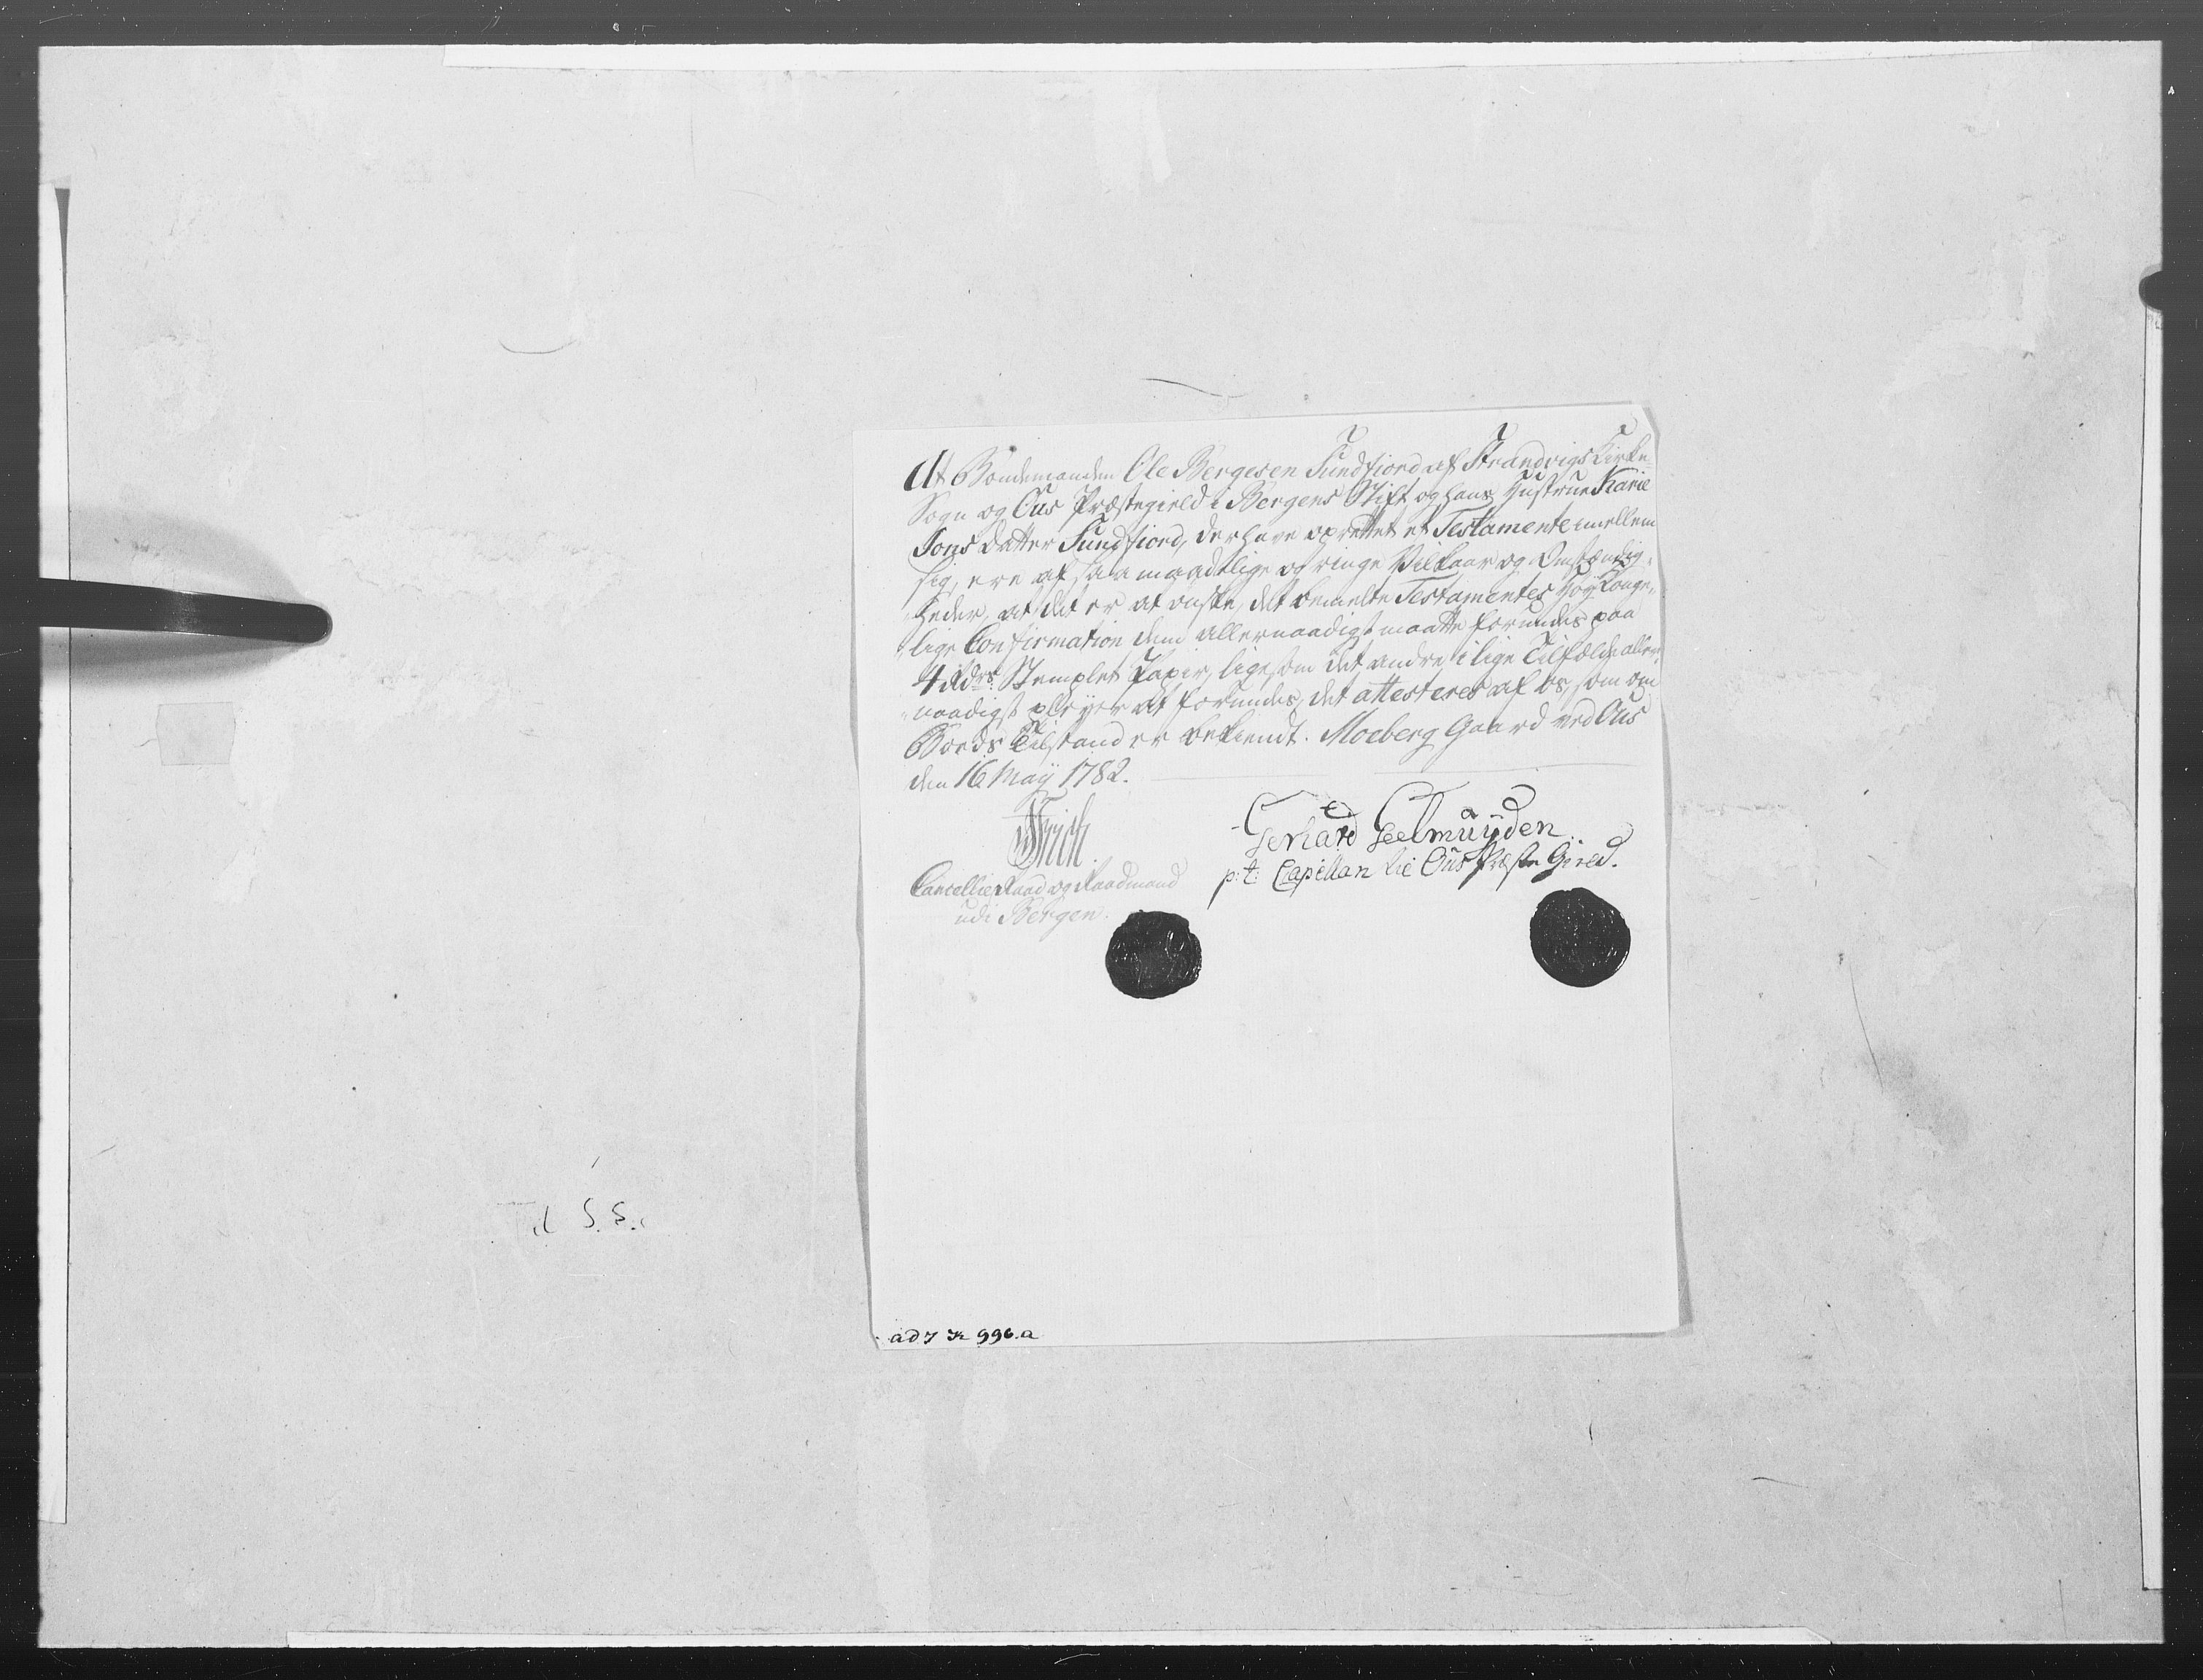 At Bondemanden Ole Bergesen Sundfiord af Strandvigs Kirke
Sogn og Ous Præstegield i Bergens Stift og hans Hustrue Karie
Jons Datter Sundfiord, der have oprettet et Testamente imellem
sig, ere af saa maadelige og ringe Vilkaar og Omstændig-
heder, at det er at ønske, det bemelte Testamentes Høy Konge-
lige Confirmation dem allernaadigst maatte forundes paa
4 Rdrs: Stemplet Papir, ligesom det andre i lige Tilfælde aller-
naadigst pleyer at forundes, det attesteres af os, som om
Boeds Tilstand er bekiendt. Moeberg Gaard ved Ous
den 16 Maij 1782.
Frich.
Cancellie Raad og Raadmand
udi Bergen.
Gerhard Geelmuÿden.
p: t: Capellan til Ous Præste Gield.
Til S. S.
ad J K 996.a